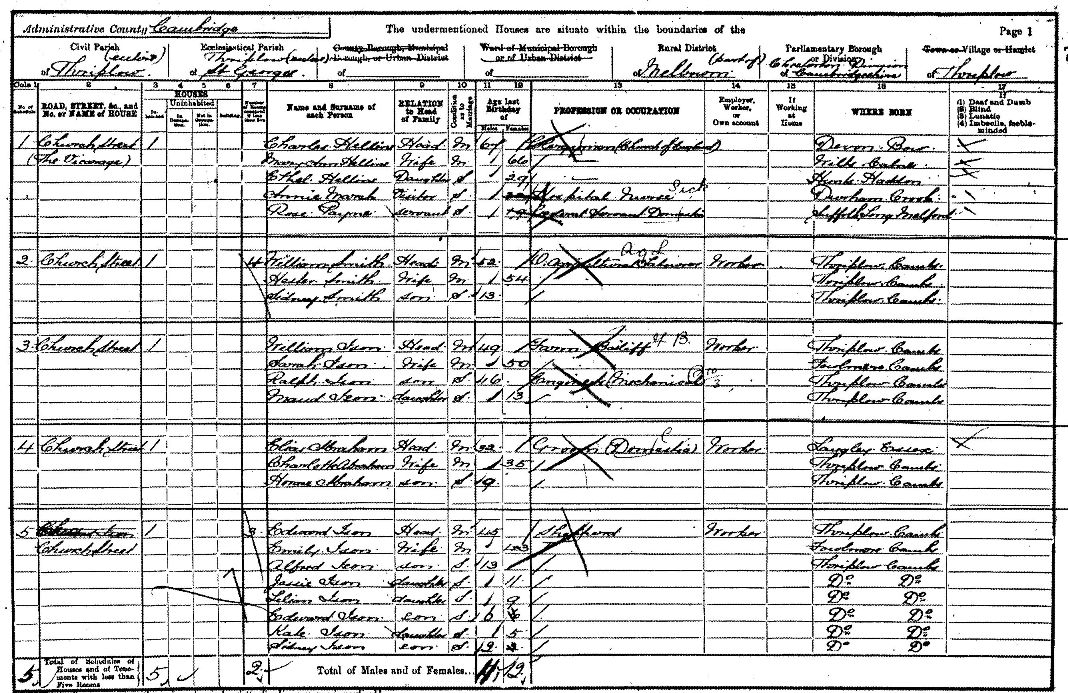 Administrative County Cambridge The undermentioned Houses are situate within the boundaries of the Page 1
Civil Parish (entire) of Thriplow Ecclesiastical Parish of Thriplow St Georges County Borough, Municipal Borough, or Urban District of Ward of Municipal Borough or of Urban District of Rural District (part of) of Melbourn Parliamentary Borough or Division of Chesterton Division Cambridgeshire Town or Village or Hamlet of Thriplow
Cols 1 2 3 4 5 6 7 8 9 10 11 12 13 14 15 16 17
No. of Schedule ROAD, STREET, &c., and No. or NAME of HOUSE HOUSES Inhabited Uninhabited In Occupation Not in Occupation Building Name and Surname of each Person RELATION to Head of Family Condition as to Marriage Age last Birthday of Males Females PROFESSION OR OCCUPATION Employer, Worker, or Own account If Working at Home WHERE BORN (1) Deaf and Dumb (2) Blind (3) Lunatic (4) Imbecile, feeble-minded
1 Church Street 1 Charles Hellins Head M 67 Clergyman (Church of England) Devon
(The Vicarage) Mary Ann Hellins Wife M 66 Wilts Calne
Ethel Hellins Daughter S 29 Hunts Haddon
Annie Marsh Visitor S Hospital Nurse Sick Durham Crook
Rose Payne servant S 19 General Servant Domestic Suffolk Long Melford
2 Church Street 1 4 William Smith Head M 52 Agricultural Labourer Agl Worker Thriplow Cambs
Hester Smith Wife M 54 Thriplow Cambs
Sidney Smith son S 13 Thriplow Cambs
3 Church Street 1 William Ison Head M 49 Farm Bailiff F B Worker Thriplow Cambs
Sarah Ison Wife M 50 Fowlmere Cambs
Ralph Ison son S 16 Engineer (Mechanical) Thriplow Cambs
Maud Ison daughter S 13 Thriplow Cambs
4 Church Street 1 Abraham Head M 32 Groom (Domestic) Worker Langley Essex
Charlotte Abraham Wife M 35 Thriplow Cambs
Horace Abraham son S 9 Thriplow Cambs
5 1 3 Edward Ison Head M 45 Shepherd Worker Thriplow Cambs
Church Street Emily Ison Wife M 43 Fowlmere Cambs
Alfred Ison son S 13 Thriplow Cambs
Jessie Ison daughter S 11 Do Do
Lilian Ison daughter S 9 Do Do
Edward Ison son S 6 Do Do
Kate Ison daughter S 5 Do Do
Sidney Ison son S 2 Do Do
5 Total of Schedules of Houses and of Tenements with less than Five Rooms 5 2 Total of Males and of Females... 11 12